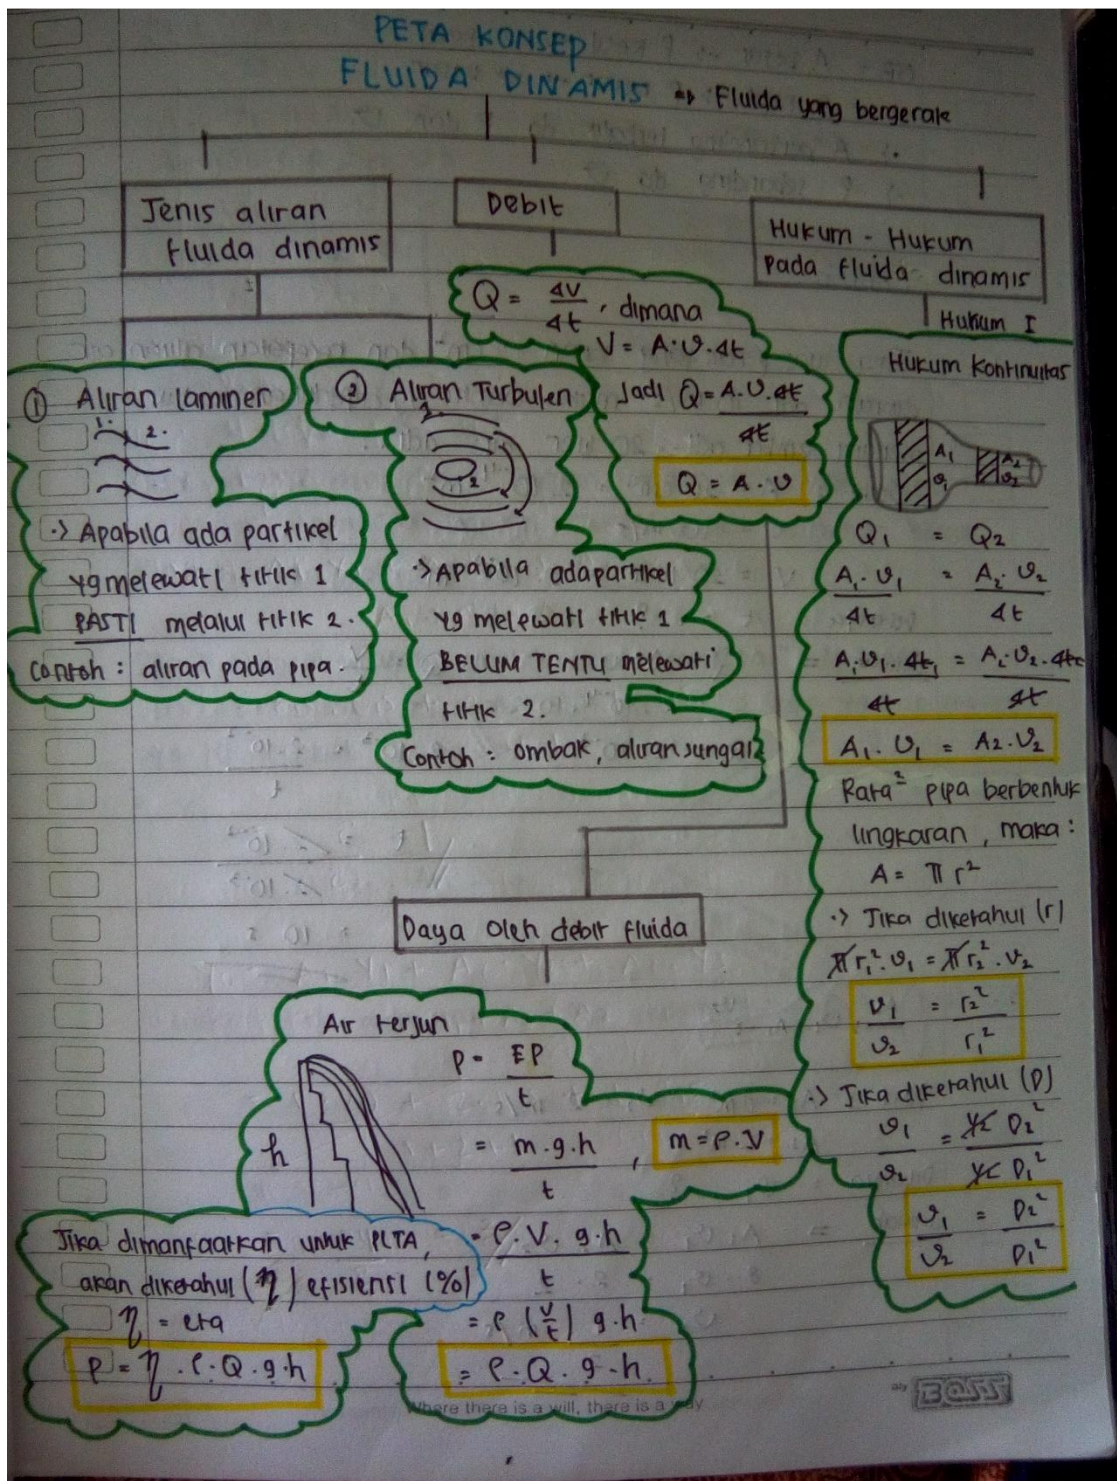 PETA KONSEP
FLUIDA DINAMIS => Fluida yang bergerak
Jenis aliran
fluida dinamis
Debit
Hukum - Hukum
pada fluida dinamis
Q = ΔV / Δt , dimana
V = A.v.Δt
Jadi Q = A.v.Δt / Δt
Q = A.v
① Aliran laminer
1. 2.
.> Apabila ada partikel
yg melewati titik 1
PASTI melalui titik 2.
Contoh : aliran pada pipa.
② Aliran Turbulen
1.
2
.> Apabila ada partikel
yg melewati titik 1
BELUM TENTU melewati
titik 2.
Contoh : ombak, aliran sungai
Hukum I
Hukum Kontinuitas
A1 A2
v1 v2
Q1 = Q2
A1.v1 / Δt = A2.v2 / Δt
A1.v1.Δt1 / Δt = A2.v2.Δt2 / Δt
A1.v1 = A2.v2
Rata² pipa berbentuk
lingkaran, maka :
A = π r²
.> Jika diketahui (r)
π r1².v1 = π r2².v2
v1 / v2 = r2² / r1²
.> Jika diketahui (D)
v1 / v2 = ½ D2² / ½ D1²
v1 / v2 = D2² / D1²
Daya oleh debit fluida
Air terjun
h
P = EP / t
= m.g.h / t , m = ρ.V
= ρ.V.g.h / t
= ρ (V/t) g.h
= ρ.Q.g.h
Jika dimanfaatkan untuk PLTA,
akan diketahui (η) efisiensi (%)
η = eta
P = η.ρ.Q.g.h
Where there is a will, there is a way
BOSS